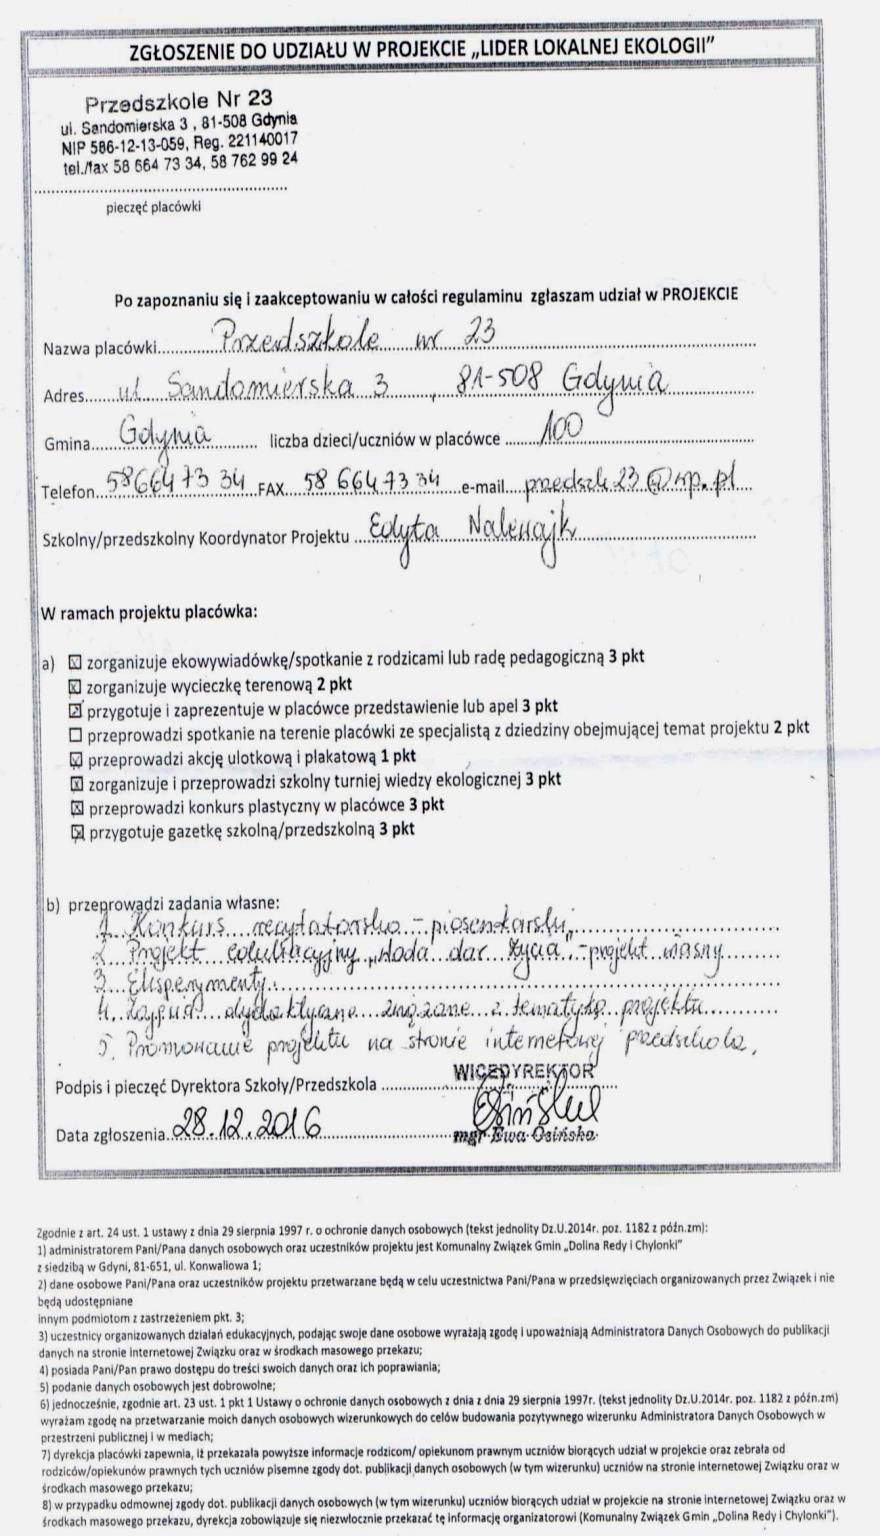 ZGŁOSZENIE DO UDZIAŁU W PROJEKCIE „LIDER LOKALNEJ EKOLOGII”
Przedszkole Nr 23
ul. Sandomierska 3 , 81-508 Gdynia
NIP 586-12-13-059, Reg. 221140017
tel./fax 58 664 73 34, 58 762 99 24
pieczęć placówki
Po zapoznaniu się i zaakceptowaniu w całości regulaminu zgłaszam udział w PROJEKCIE
Nazwa placówki Przedszkole nr 23
Adres ul. Sandomierska 3 , 81-508 Gdynia
Gmina Gdynia liczba dzieci/uczniów w placówce 100
Telefon 58 664 73 34 FAX 58 664 73 34 e-mail przedszk23@wp.pl
Szkolny/przedszkolny Koordynator Projektu Edyta Nalewajk
W ramach projektu placówka:
a) ☒ zorganizuje ekowywiadówkę/spotkanie z rodzicami lub radę pedagogiczną 3 pkt
☒ zorganizuje wycieczkę terenową 2 pkt
☒ przygotuje i zaprezentuje w placówce przedstawienie lub apel 3 pkt
☐ przeprowadzi spotkanie na terenie placówki ze specjalistą z dziedziny obejmującej temat projektu 2 pkt
☒ przeprowadzi akcję ulotkową i plakatową 1 pkt
☒ zorganizuje i przeprowadzi szkolny turniej wiedzy ekologicznej 3 pkt
☒ przeprowadzi konkurs plastyczny w placówce 3 pkt
☒ przygotuje gazetkę szkolną/przedszkolną 3 pkt
b) przeprowadzi zadania własne:
1. Konkurs recytatorsko - piosenkarski
2. Projekt edukacyjny „Woda dar życia” - projekt własny
3. Eksperymenty
4. Zajęcia dydaktyczne związane z tematyką projektu
5. Promowanie projektu na stronie internetowej przedszkola.
WICEDYREKTOR
Podpis i pieczęć Dyrektora Szkoły/Przedszkola
mgr Ewa Osińska
Data zgłoszenia 28.12.2016
Zgodnie z art. 24 ust. 1 ustawy z dnia 29 sierpnia 1997 r. o ochronie danych osobowych (tekst jednolity Dz.U.2014r. poz. 1182 z późn.zm):
1) administratorem Pani/Pana danych osobowych oraz uczestników projektu jest Komunalny Związek Gmin „Dolina Redy i Chylonki”
z siedzibą w Gdyni, 81-651, ul. Konwaliowa 1;
2) dane osobowe Pani/Pana oraz uczestników projektu przetwarzane będą w celu uczestnictwa Pani/Pana w przedsięwzięciach organizowanych przez Związek i nie
będą udostępniane
innym podmiotom z zastrzeżeniem pkt. 3;
3) uczestnicy organizowanych działań edukacyjnych, podając swoje dane osobowe wyrażają zgodę i upoważniają Administratora Danych Osobowych do publikacji
danych na stronie internetowej Związku oraz w środkach masowego przekazu;
4) posiada Pani/Pan prawo dostępu do treści swoich danych oraz ich poprawiania;
5) podanie danych osobowych jest dobrowolne;
6) jednocześnie, zgodnie art. 23 ust. 1 pkt 1 Ustawy o ochronie danych osobowych z dnia z dnia 29 sierpnia 1997r. (tekst jednolity Dz.U.2014r. poz. 1182 z późn.zm)
wyrażam zgodę na przetwarzanie moich danych osobowych wizerunkowych do celów budowania pozytywnego wizerunku Administratora Danych Osobowych w
przestrzeni publicznej i w mediach;
7) dyrekcja placówki zapewnia, iż przekazała powyższe informacje rodzicom/ opiekunom prawnym uczniów biorących udział w projekcie oraz zebrała od
rodziców/opiekunów prawnych tych uczniów pisemne zgody dot. publikacji danych osobowych (w tym wizerunku) uczniów na stronie internetowej Związku oraz w
środkach masowego przekazu;
8) w przypadku odmownej zgody dot. publikacji danych osobowych (w tym wizerunku) uczniów biorących udział w projekcie na stronie internetowej Związku oraz w
środkach masowego przekazu, dyrekcja zobowiązuje się niezwłocznie przekazać tę informację organizatorowi (Komunalny Związek Gmin „Dolina Redy i Chylonki”).